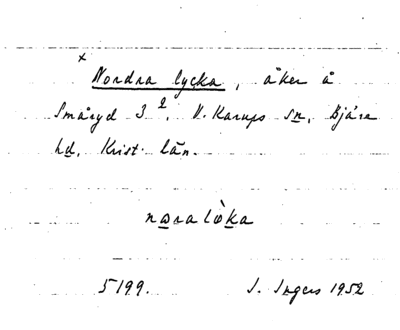 x
Nordra lycka, åker å
Småryd 3², V. Karups sn, Bjäre
hd, Krist. län.
nɷralɷ̀ka
5199. I. Ingers 1952